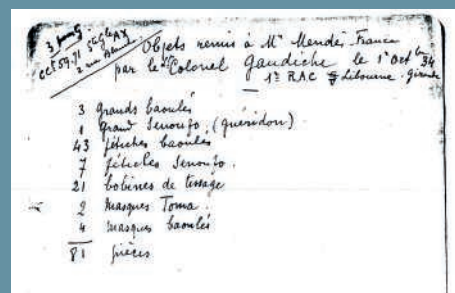 3 
Cct 59.71 5t Gle AX
2 rue
Objets remis à Mr Mendès-France
par le Colonel Gaudiche le 1er Octbre 34
1er RAC Libourne - Gironde
3 grands baoulés
1 grand Senoufo, (guéridon)
43 fétiches baoulés
7 fétiches Senoufo.
21 bobines de tissage
2 masques Toma.
4 masques baoulés
81 pièces